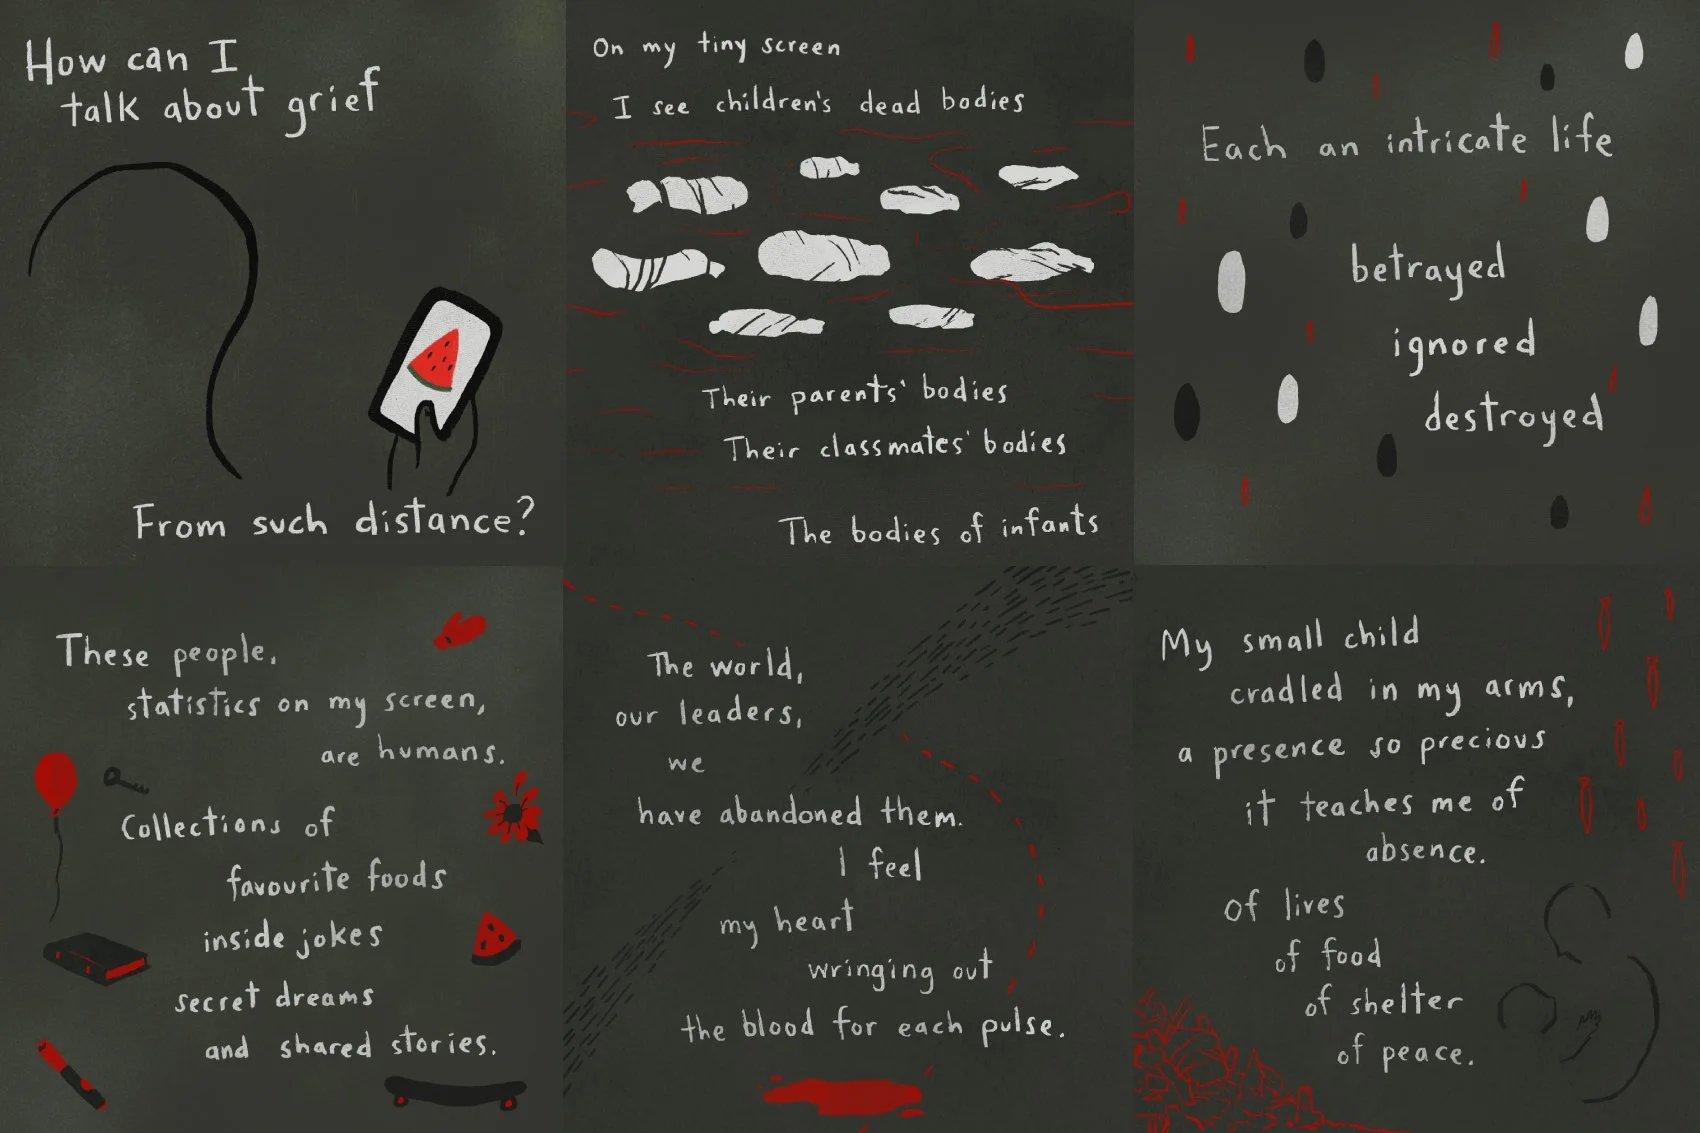 How can I
talk about grief
From such distance?
On my tiny screen
I see children's dead bodies
Their parents' bodies
Their classmates' bodies
The bodies of infants
Each an intricate life
betrayed
ignored
destroyed
These people,
statistics on my screen,
are humans.
Collections of
favourite foods
inside jokes
secret dreams
and shared stories.
The world,
our leaders,
we
have abandoned them.
I feel
my heart
wringing out
the blood for each pulse.
My small child
cradled in my arms,
a presence so precious
it teaches me of
absence.
Of lives
of food
of shelter
of peace.